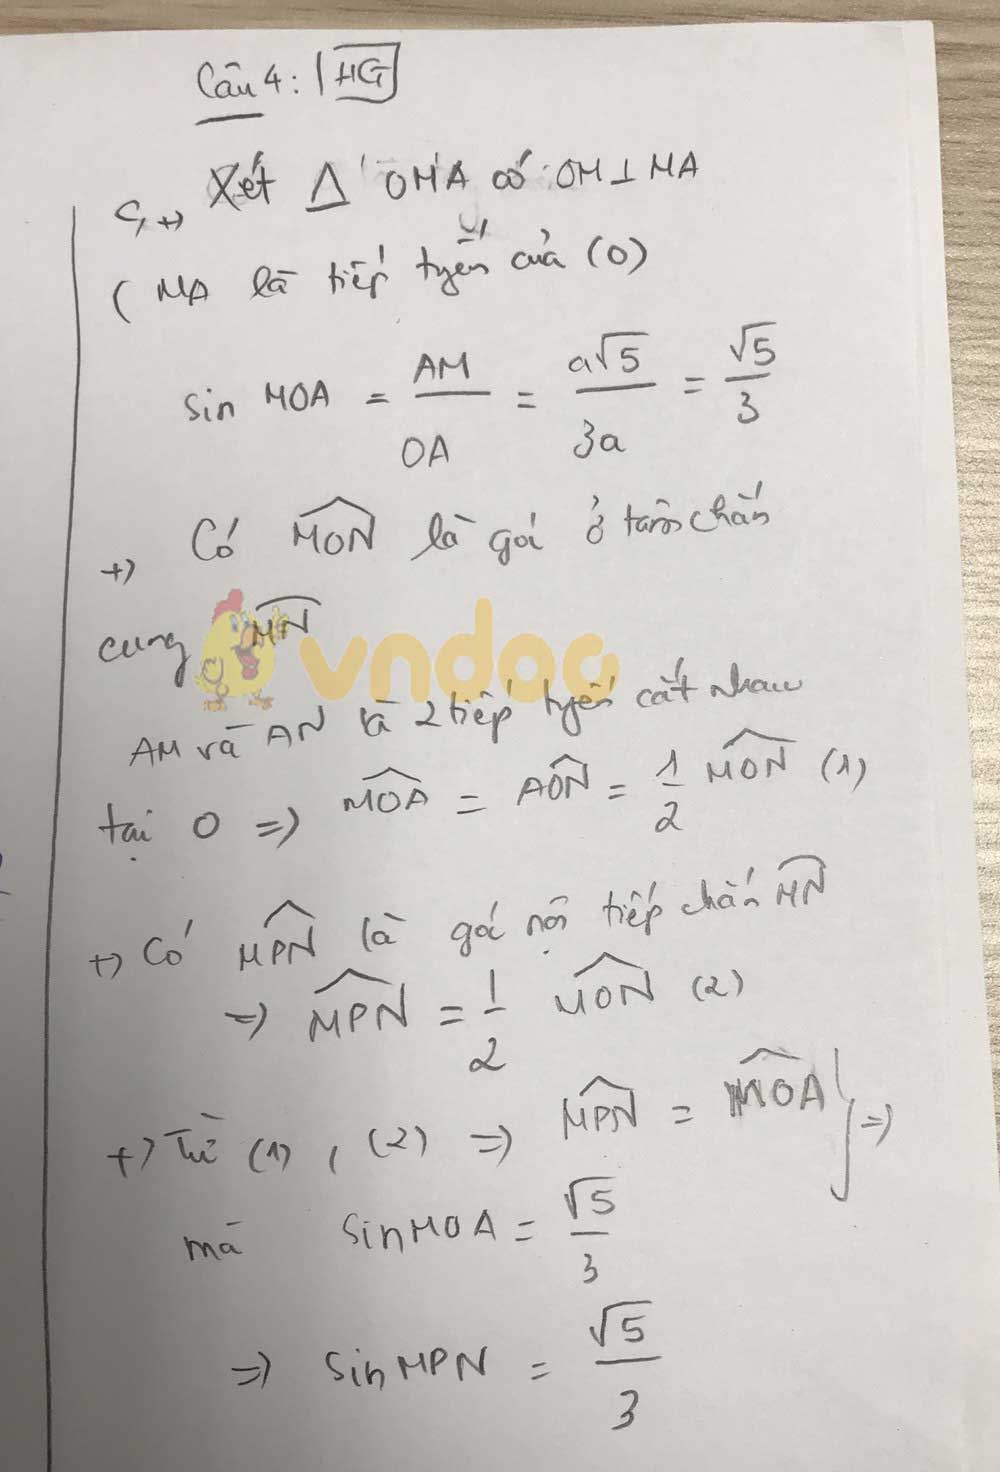 Câu 4: HG
c, +) Xét Δ OMA có OM ⊥ MA
( MA là tiếp tuyến của (O)
sin MOA = AM / OA = a√5 / 3a = √5 / 3
+) Có MON là góc ở tâm chắn
cung MN
vndoc
AM và AN là 2 tiếp tuyến cắt nhau
tại O => MOA = AON = 1/2 MON (1)
+) Có MPN là góc nội tiếp chắn MN
=> MPN = 1/2 MON (2)
+) Từ (1), (2) => MPN = MOA } =>
mà sin MOA = √5 / 3
=> sin MPN = √5 / 3